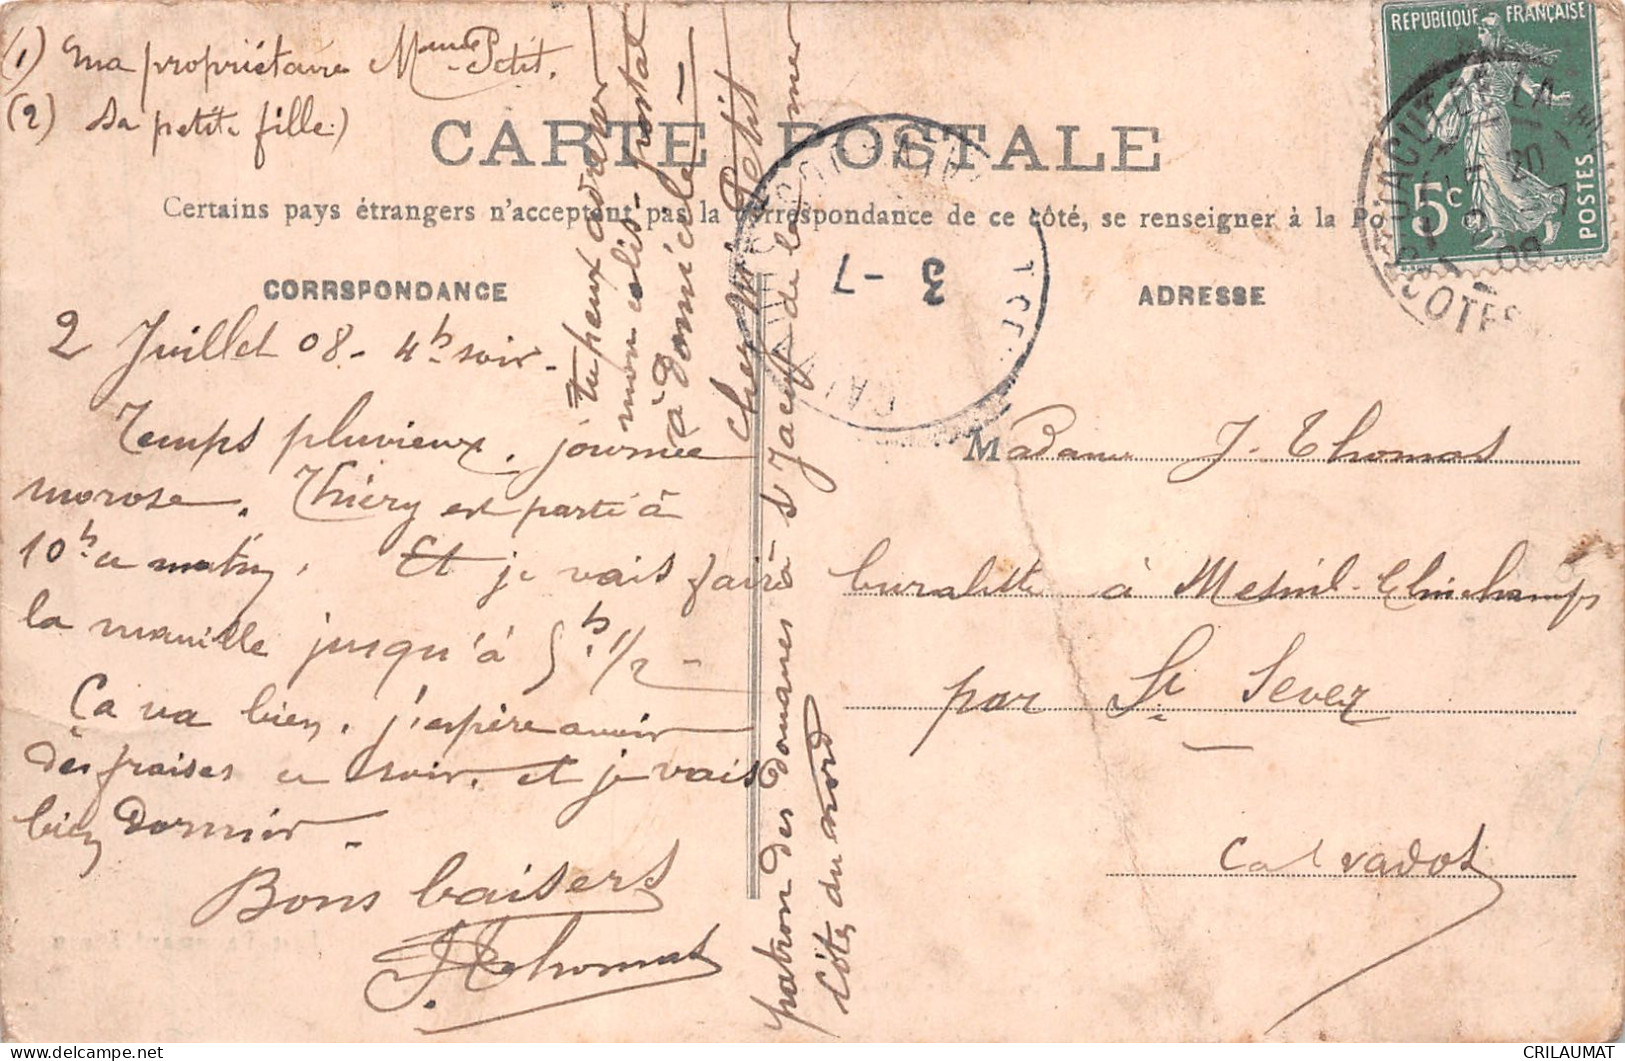 (1) ma propriétaire Mme Petit.
(2) Sa petite fille)
RÉPUBLIQUE FRANÇAISE
5c POSTES
CARTE POSTALE
Certains pays étrangers n'acceptent pas la correspondance de ce côté, se renseigner à la Po
CORRSPONDANCE
ADRESSE
2 Juillet 08 - 4h soir -
Temps pluvieux. journée
morose. Thiéry est parti à
10h ce matin. Et je vais faire
la manille jusqu'à 5h 1/2 -
Ça va bien. j'espère avoir
des fraises ce soir. et je vais
bien dormir -
Bons baisers
J Thomas
tu peux adresser
mon colis-postal
à domicile -
chez Mr Petit
patron des douanes à St Jacut de la mer
Côtes du nord
Madame J. Thomas
buraliste à Mesnil-Clinchamps
par St Sever
Calvados
ST JACUT DE LA MER
2 7 08
COTES
3 -7
CALVADOS
CRILAUMAT